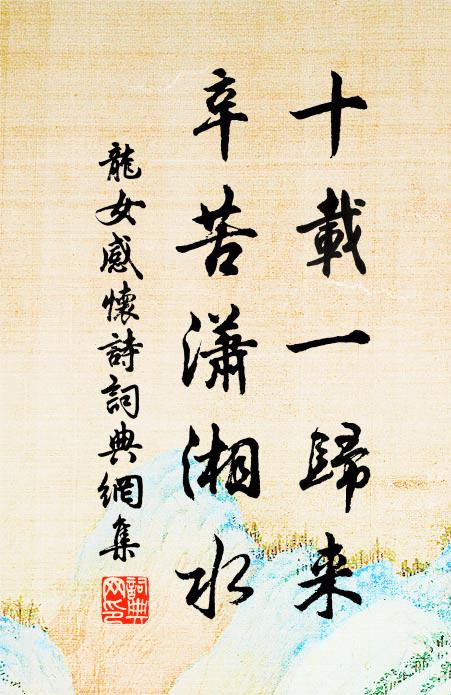 十載一歸来
辛苦瀟湘水
龍女感懷詩詞典網集
詞典網印